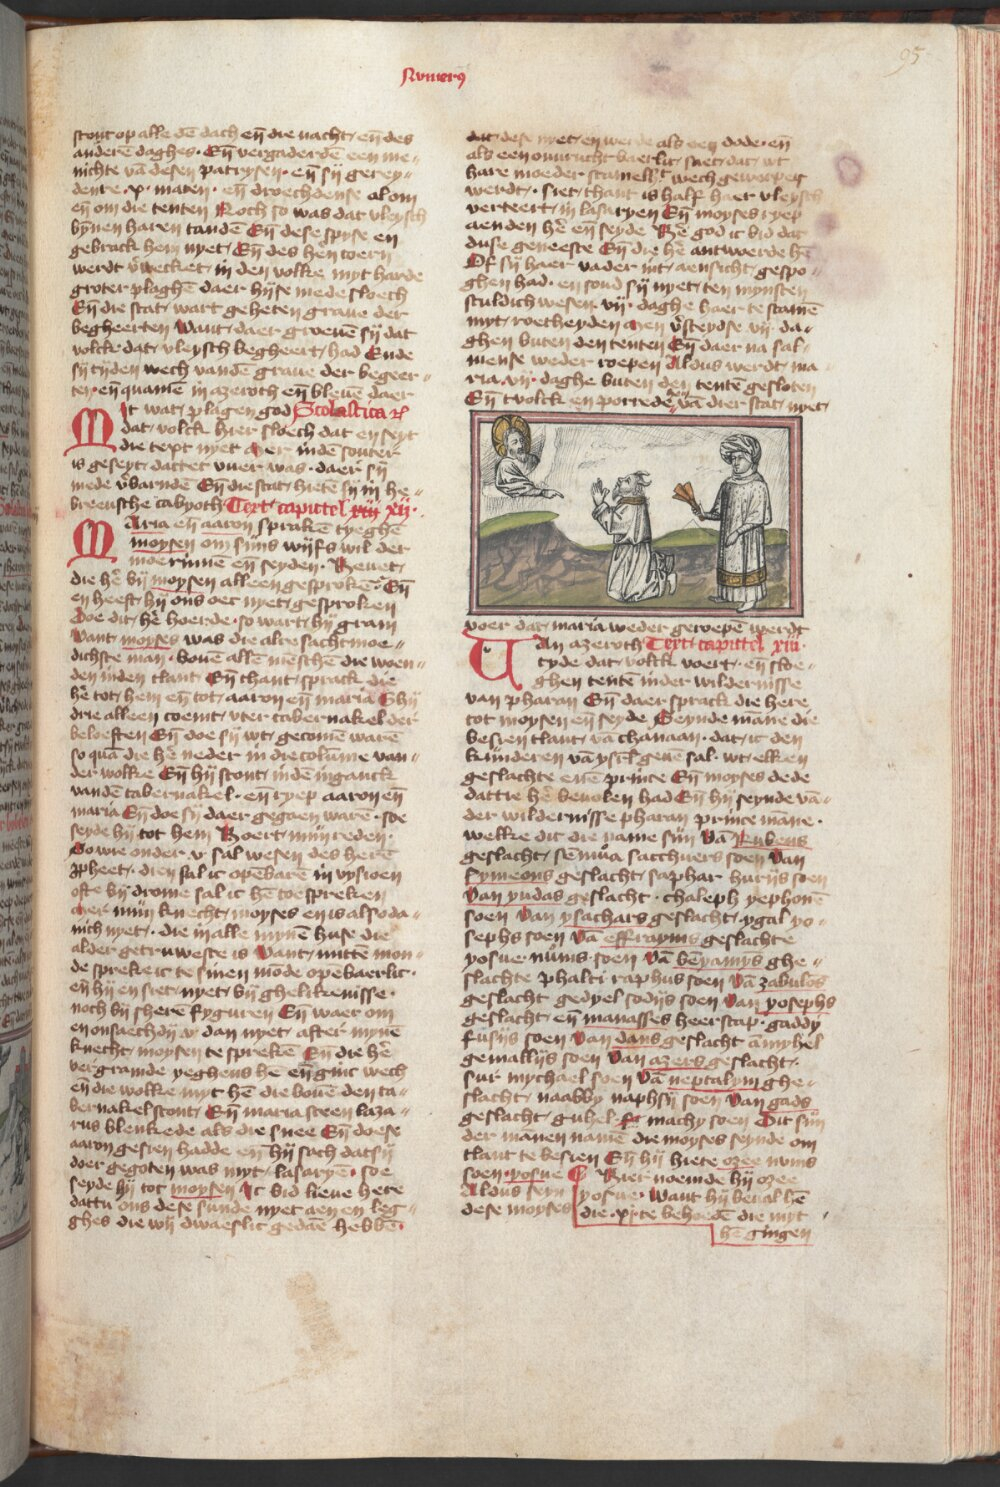 Numerus
95
stont op alle dē dach eñ die nacht eñ des
anderē daghes · Eñ vergaderdē een me-
nichte vā desen patrysen · eñ sy gerey-
dense · x · maten · eñ droechdense al om
eñ om die tenten Noch so was dat vleysch
bynnen haren tandē Eñ dese spyse en
gebrack hem nyet Eñ des hen toern
werdt verwecket in den volke myt harde
groter plaghē daer hyse mede sloech
Eñ die stat wart geheten graue der
begheerten Want daer groeuē sy dat
volck dat vleysch begheert had Ende
sy tyden wech vandē graue der begeer-
ten eñ quamē in azeroth eñ bleuē daer
Mit wat plagen god Scolastica
dat volck hier sloech dat en seyt
die text nyet Mer inde souter
is geseyt dattet vuer was · daer sy
mede verbarndē Eñ die stat hietē sy in he-
breusche cabyoth Text capittel xij
Maria eñ aaron sprakē tyeghē
moysen om syns wyfs wil der
moerinnen eñ seyden · Neuet
die hē by moysen alleen gesprokē · Eñ
en heeft hy ons oec nyet gesproken
Doe dit hē hoerde · so wart hy gram
Want moyses was die alre sachtmoe-
dichste man · bouē allē mēschē die woen-
den inden tlant Eñ thant sprack die
hē tot hem eñ tot aaron eñ maria Ghy
drie alleen coemt vter tabernakel der
beloeften Eñ doe sy wt gecomē warē
so quā die hē neder in die columē van-
der wolke Eñ hy stont inden inganck
vandē tabernakel · eñ ryep aaron eñ
maria Eñ doe sy daer gegaen warē · soe
seyde hy tot hem Hoert myn reden ·
So wie onder v sal wesen des herē
ppheet · dien sal ic opēbarē in vysioen
ofte by drome sal ic hē toe spreken
Mer myn knecht moyses en is also da-
nich nyet · die in alle mynē huse die
alder getruweste is Want mitte mon-
de sprekeic te sinen mōde opēbaerlic ·
eñ hy en siet nyet by ghelikenisse ·
noch by sheere fyguren Eñ waer om
en ontsaechdy v dan nyet after mynē
knecht moysen te sprekē Eñ die hē
vergramde yeghens hē eñ ginc wech
eñ die wolke myt hē die bouē den ta-
bernakel stont Eñ maria sceen laza-
rus blenkede als die snee Eñ doe se
aaron gesien hadde eñ hy sach dat sy
doer gegoten was myt lasaryē · soe
seyde hy tot moysen Ic bid lieue here
dattu ons dese sunde nyet aen en leg-
ghes die wy dwaeslic gedaē hebbē ·
dat dese nyet en werde als een dode · eñ
als een onurucht baerlic saet dat wt
hare moeder wech geworpen
werdt · siet thant is half haer vleysch
verteert in lasaryen Eñ moyses ryep
aenden hē eñ seyde Hē god ic bid dat
duse geneeste Eñ die hē antwerde hē
Of sy haer vader int aensicht gespo-
ghen had · en soud sy nyet ten mynsten
sculdich wesen vij · daghe haer te scamē
myt roetheyden Men versteydse vij · da-
ghen buten den tenten Eñ daer na sal-
mense weder roepen Aldus werdt ma-
ria · vij · daghe buten den tentē gesloten
Eñ tvolck en porrede vā dier stat nyet
voer dat maria weder geroepē werdt
Van azeroth Text capittel xiij ·
tyde dat volck voert · eñ sloe-
ghen tentē inder wildernisse
van pharan Eñ daer sprack die here
tot moysen eñ seyde Seynde māne die
besien tlant vā chanaan · dat ic den
kynderen vā ysrl' geuē sal · wt elken
geslachte enē prince Eñ moyses dede
dattie hē beuolen had Eñ hy seynde vā-
der wildernisse pharan prince māne ·
welke dit die name syn Vā Rubens
geslacht sēmua sacchuers soen Van
Symeons geslacht saphar hurys soen
Van yudas geslacht · chaleph yephonē
soen Van ysachars geslacht ygal yo-
sephs soen Vā effrayms geslachte
yosue · nums soen Vā bēyamys ghe-
slachte phalti raphus soen Vā zabulōs
geslacht gedyel sodys soen Van yosephs
geslacht eñ manasses heerscap · gaddy
susys soen Van dans geslacht āmyhel
gemallys soen Van azers geslacht ·
sur mychael soen Vā neptalym ghe-
slacht naabby naphsy soen Van gads
geslacht guhel machy soen Dit syn
der mānen namē die moyses seynde om
tlant te besien Eñ hy hiete ozee nums
soen · yosue Hier noemde hy ozee
Aldus seyn yosue · Want hy beual hē
dese moyses die · xj · te behoedē die myt
hē gingen